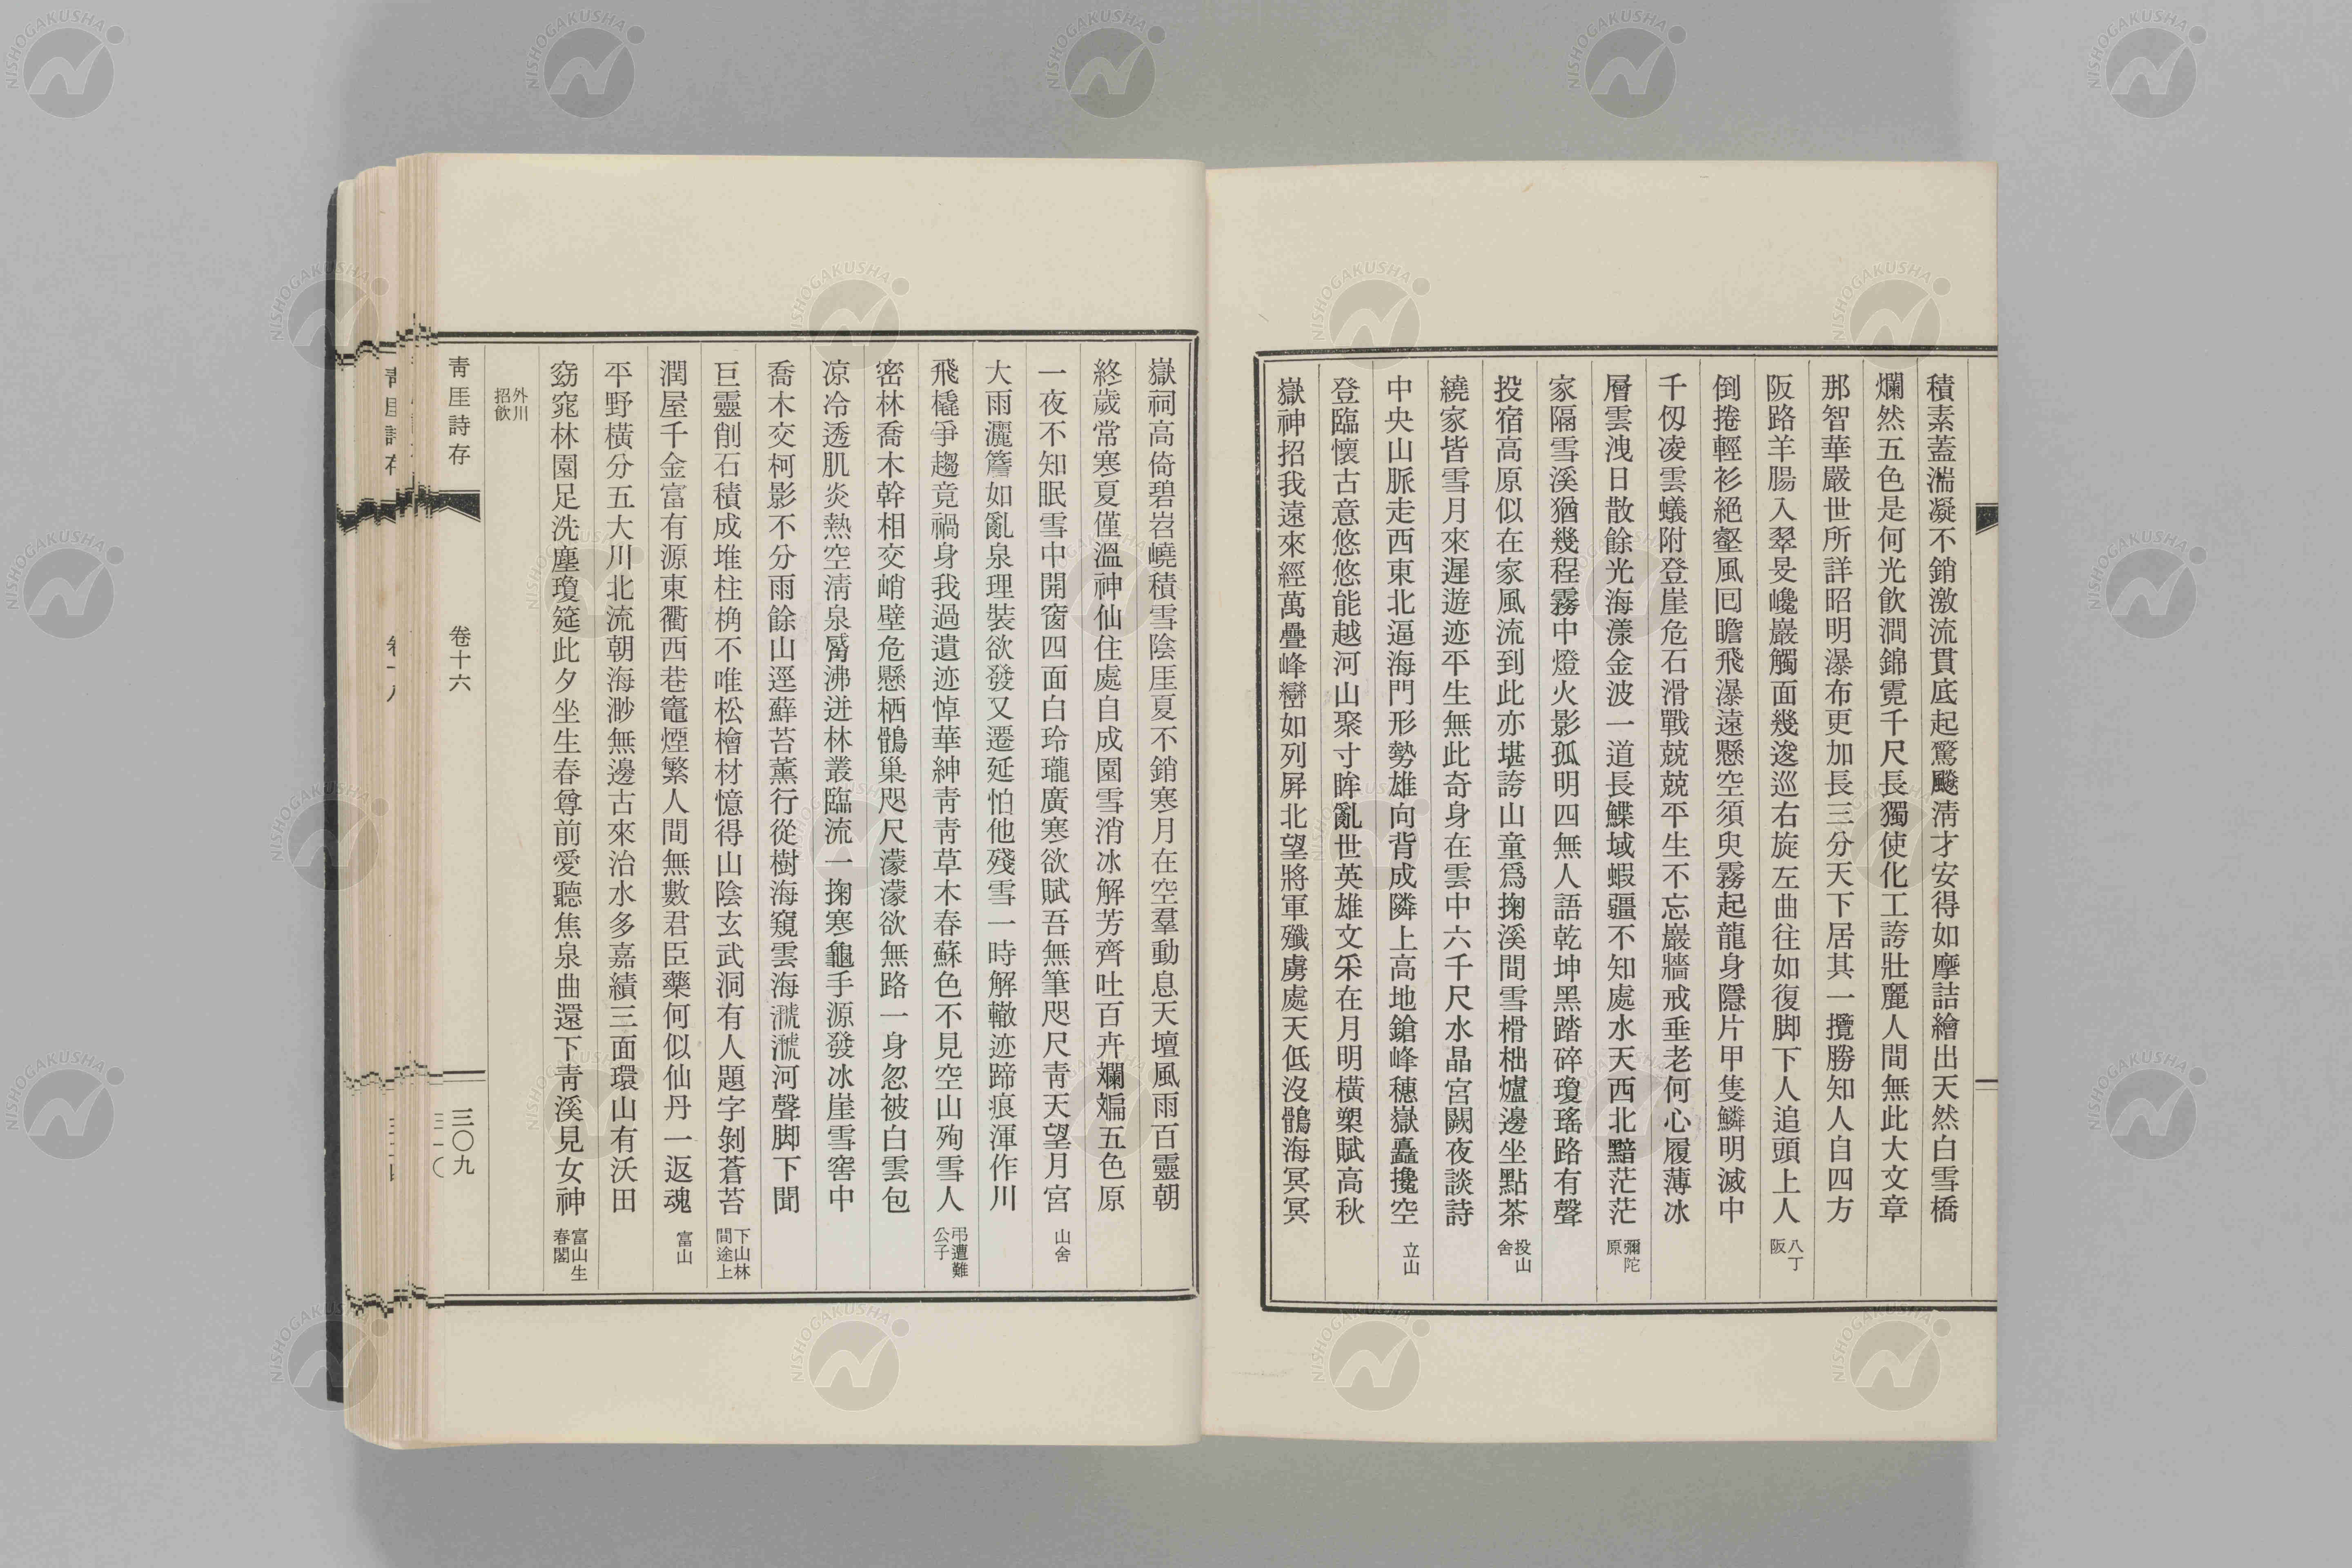 積素蓋湍凝不銷激流貫底起驚飇淸才安得如摩詰繪出天然白雪橋
爛然五色是何光飮澗錦霓千尺長獨使化工誇壯麗人間無此大文章
那智華嚴世所詳昭明瀑布更加長三分天下居其一攬勝知人自四方
阪路羊腸入翠旻巉巖觸面幾逡巡右旋左曲往如復脚下人追頭上人 八丁阪
倒捲輕衫絕壑風回瞻飛瀑遠懸空須臾霧起龍身隱片甲隻鱗明滅中
千仭凌雲蟻附登崖危石滑戰兢兢平生不忘巖牆戒垂老何心履薄冰
層雲洩日散餘光海漾金波一道長鰈域蝦疆不知處水天西北黯茫茫 彌陀原
家隔雪溪猶幾程霧中燈火影孤明四無人語乾坤黑踏碎瓊瑤路有聲
投宿高原似在家風流到此亦堪誇山童爲掬溪間雪榾柮爐邊坐點茶 投山舍
繞家皆雪月來遲遊迹平生無此奇身在雲中六千尺水晶宮闕夜談詩
中央山脈走西東北逼海門形勢雄向背成隣上高地鎗峰穗嶽矗攙空 立山
登臨懷古意悠悠能越河山聚寸眸亂世英雄文采在月明橫槊賦高秋
嶽神招我遠來經萬疊峰巒如列屛北望將軍殲虜處天低沒鶻海冥冥
嶽祠高倚碧岧嶢積雪陰厓夏不銷寒月在空羣動息天壇風雨百靈朝
終歲常寒夏僅溫神仙住處自成園雪消冰解芳齊吐百卉斕斒五色原
一夜不知眠雪中開窗四面白玲瓏廣寒欲賦吾無筆咫尺靑天望月宮 山舍
大雨灑簷如亂泉理裝欲發又遷延怕他殘雪一時解轍迹蹄痕渾作川
飛橇爭趨竟禍身我過遺迹悼華紳靑靑草木春蘇色不見空山殉雪人 弔遭難公子
密林喬木幹相交峭壁危懸栖鶻巢咫尺濛濛欲無路一身忽被白雲包
凉冷透肌炎熱空淸泉觱沸迸林叢臨流一掬寒龜手源發冰崖雪窖中
喬木交柯影不分雨餘山逕蘚苔薰行從樹海窺雲海㶁㶁河聲脚下聞
巨靈削石積成堆柱桷不唯松檜材憶得山陰玄武洞有人題字剝蒼苔 下山林間途上
潤屋千金富有源東衢西巷竈煙繁人間無數君臣藥何似仙丹一返魂 富山
平野橫分五大川北流朝海渺無邊古來治水多嘉績三面環山有沃田
窈窕林園足洗塵瓊筵此夕坐生春尊前愛聽焦泉曲還下靑溪見女神 富山生春閣
外川招飮
靑厓詩存 卷十六 三〇九